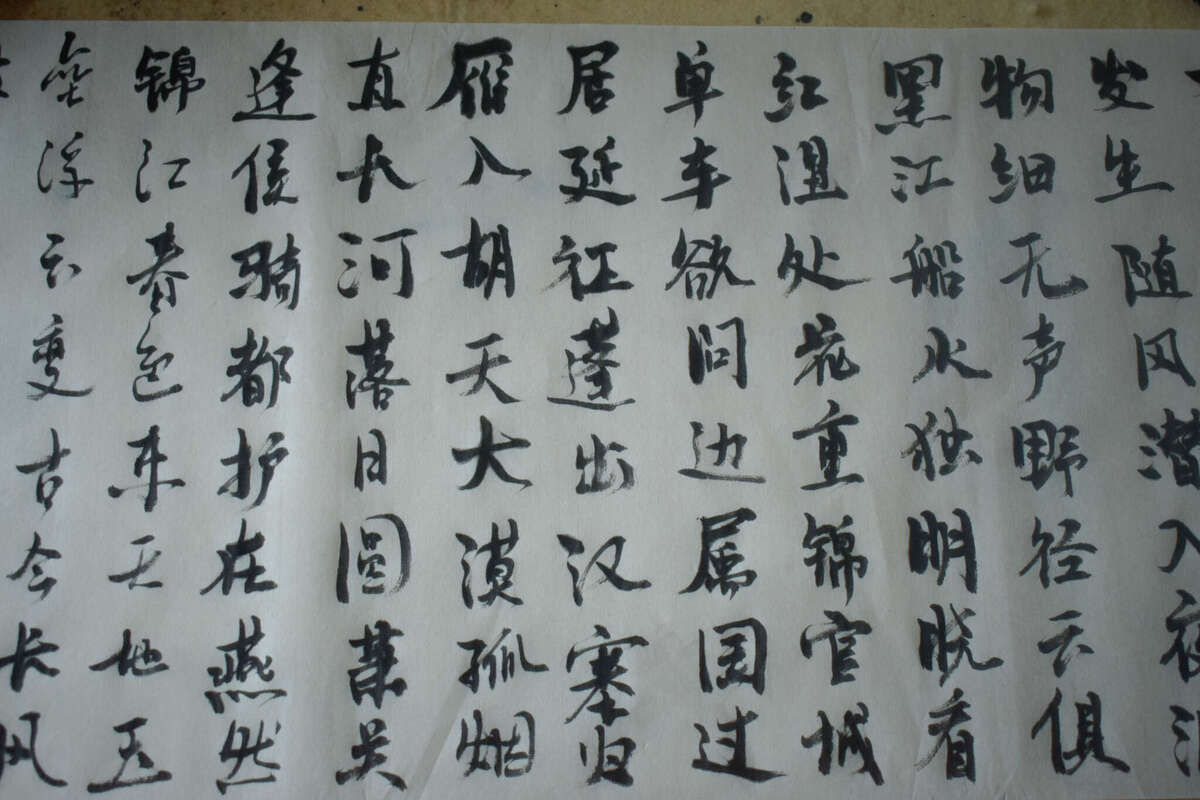 发生随风潜入夜
物细无声野径云俱
黑江船火独明晓看
红湿处花重锦官城
单车欲问边属国过
居延征蓬出汉塞归
雁入胡天大漠孤烟
直长河落日圆萧关
逢侯骑都护在燕然
锦江春色来天地玉
垒浮云变古今长风